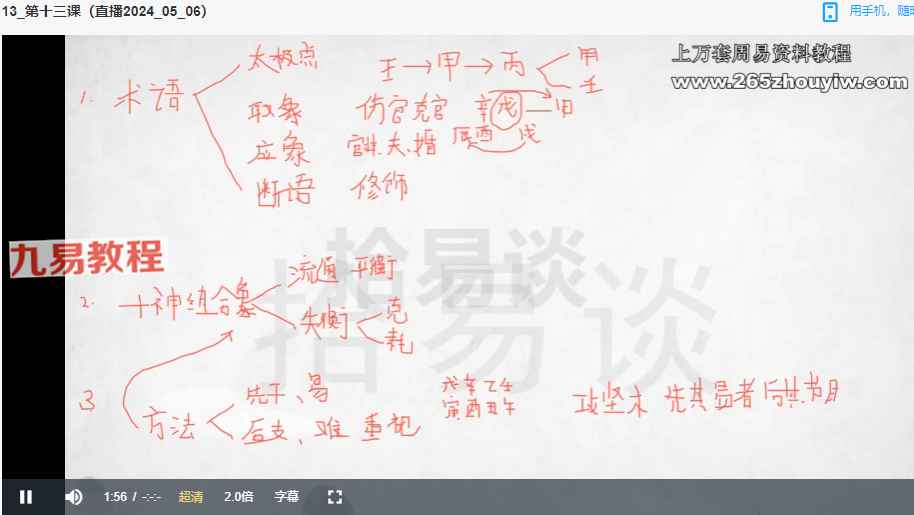 13_第十三课（直播2024_05_06）
用手机，随
上万套周易资料教程
www.265zhouyiw.com
太极点 壬→甲→丙 甲 壬
1. 术语
取象 伤官克官 辛戊—甲
应象 官非.夫.婚 辰酉 戌
断语 修饰
拾易谈
九易教程
流通 平衡
2. 十神组合象
失衡 克 耗
拾易谈
3 方法
先干、易 戊辛乙壬
后支、难 重犯 寅酉丑午
攻坚木 先其易者 后其节目
1:56 / -:-:- 超清 2.0倍 字幕